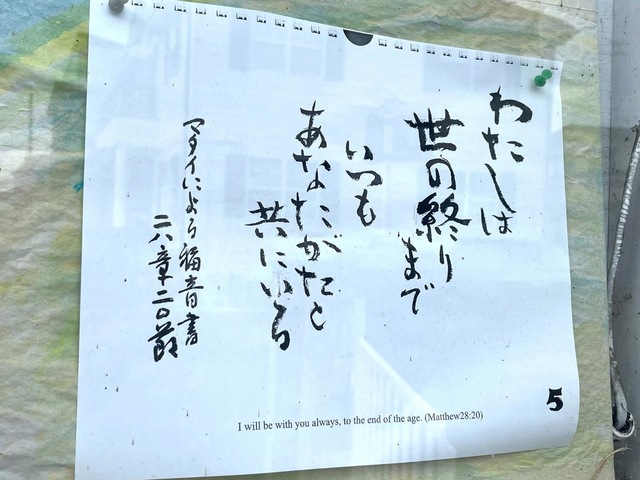 わたしは
世の終りまで
いつも
あなたがたと
共にいる
マタイによる福音書
二八章二〇節
I will be with you always, to the end of the age. (Matthew28:20)
5